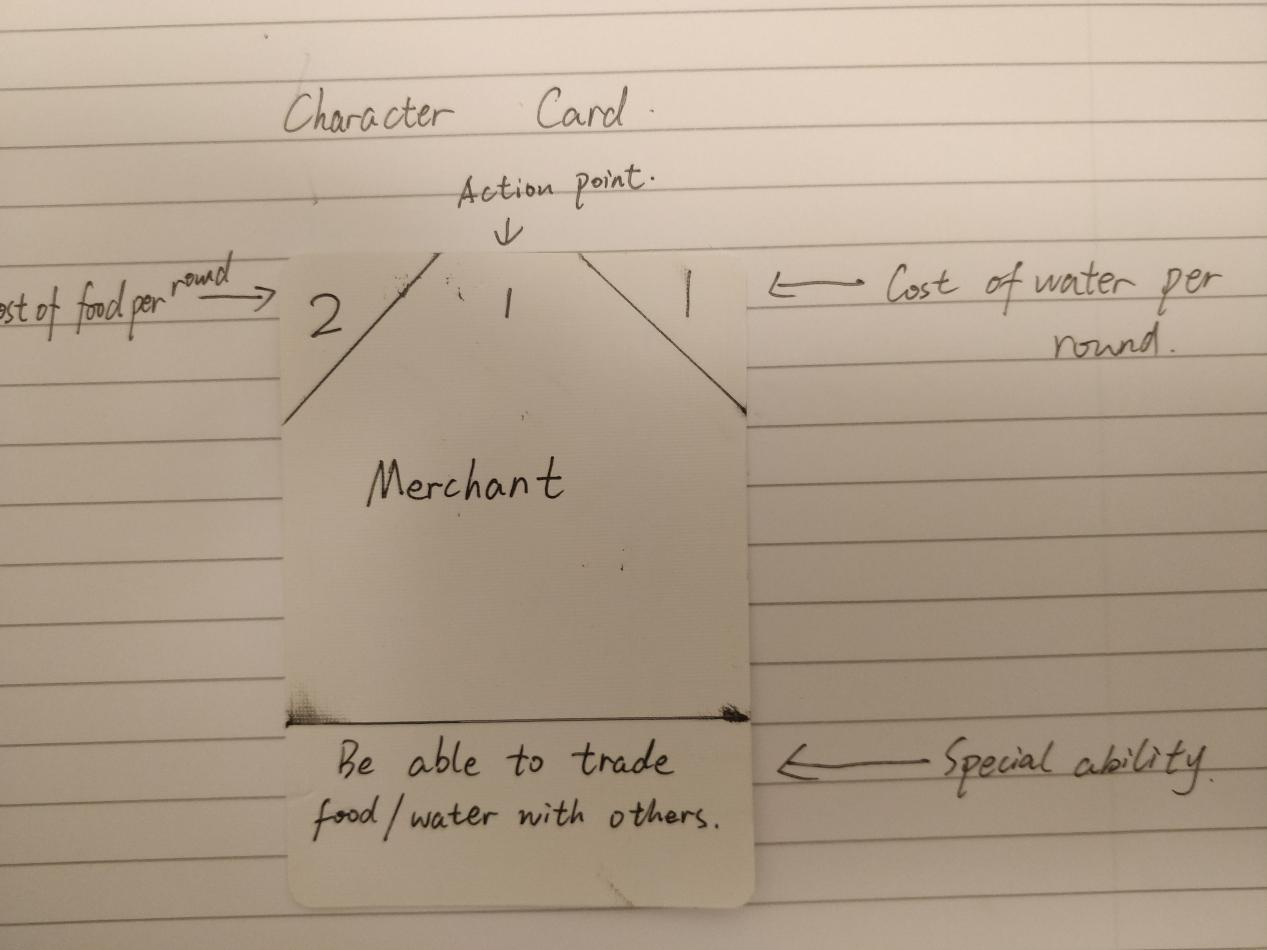 Character Card.
Action point.
ost of food per round
2
1
1
Cost of water per
round.
Merchant
Be able to trade
food/water with others.
Special ability.